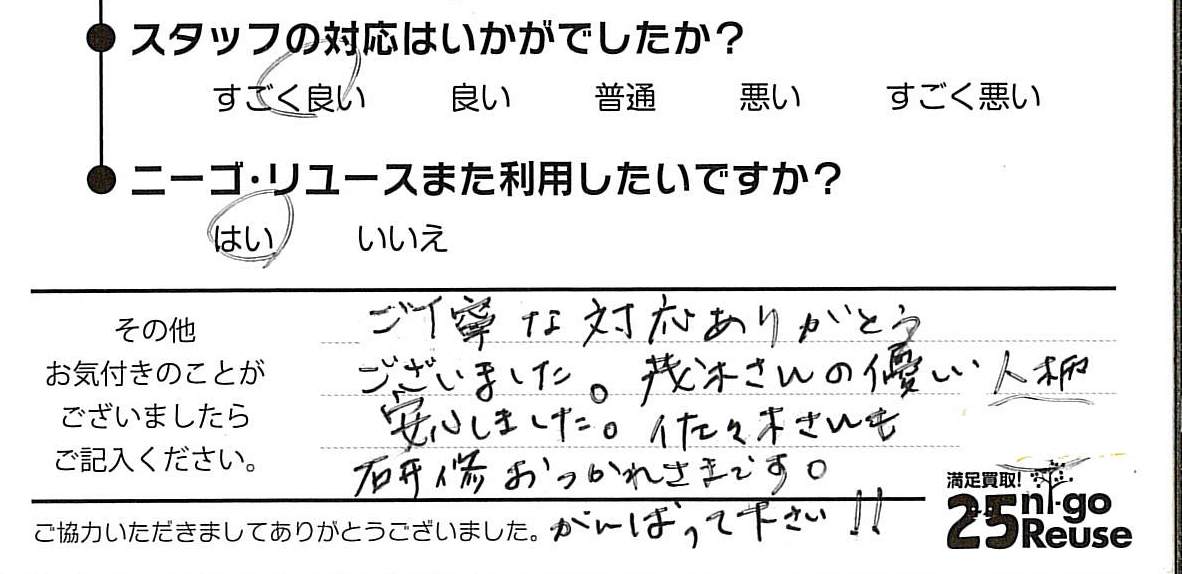 スタッフの対応はいかがでしたか？
すごく良い 良い 普通 悪い すごく悪い
ニーゴ・リユースまた利用したいですか？
はい いいえ
その他
お気付きのことが
ございましたら
ご記入ください。
ご丁寧な対応ありがとう
ございました。茂木さんの優しい人柄
安心しました。佐々木さんも
研修おつかれさまです。
がんばって下さい!!
ご協力いただきましてありがとうございました。
満足買取!
25 ni-go
Reuse